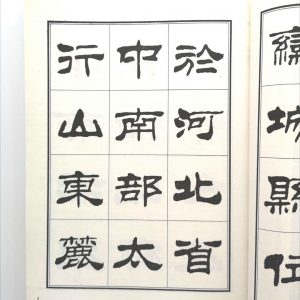 欒城縣位
於河北省
中南部太
行山東麓